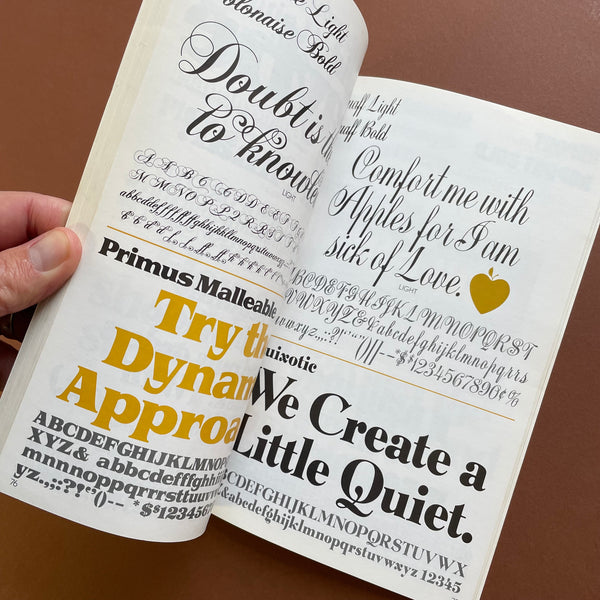 Light
olonaise Bold
Doubt is th
to knowle
LIGHT
Primus Malleable
Try th
Dynam
Approa
ABCDEFGHIJKLMNOP
XYZ& abbcdefffghhij
mnnnoppqrrrsttuuvw
yz.,;:?!""()-- *$12345
76
Light
Bold
Comfort me with
Apples for I am
sick of Love.
LIGHT
ABCDEFGHIJKLMNOPQRST
UVWXYZ&abcdefghijklmnopqrrs
uvwxyz.,;:?!""()--*$1234567890¢%
uixotic
We Create a
Little Quiet.
CDEFGHIJKLMNOPQRSTUVWX
&abcdefghijklmnopqrstuvwxyz 12345